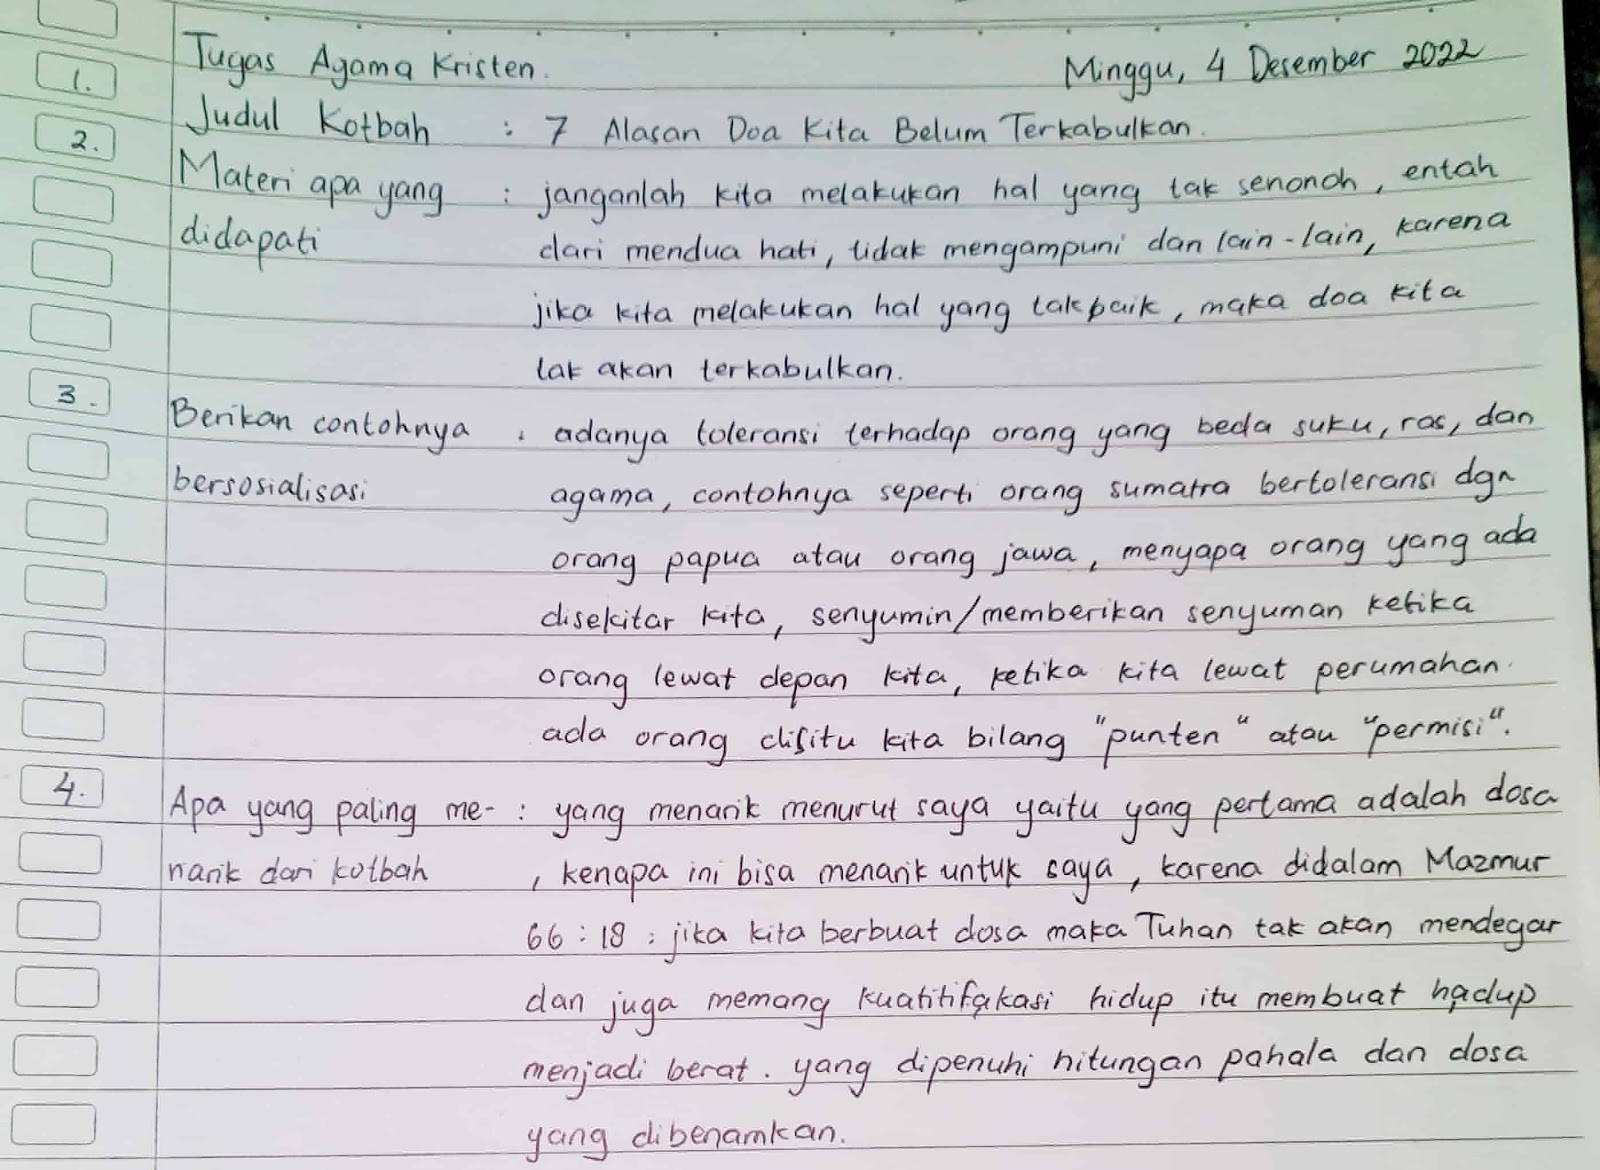 Tugas Agama Kristen. Minggu, 4 Desember 2022
1. Judul Kotbah : 7 Alasan Doa Kita Belum Terkabulkan.
2. Materi apa yang : janganlah kita melakukan hal yang tak senonoh, entah
didapati dari mendua hati, tidak mengampuni dan lain-lain, karena
jika kita melakukan hal yang tak baik, maka doa kita
tak akan terkabulkan.
3. Berikan contohnya : adanya toleransi terhadap orang yang beda suku, ras, dan
bersosialisasi agama, contohnya seperti orang sumatra bertoleransi dgn
orang papua atau orang jawa, menyapa orang yang ada
disekitar kita, senyumin/memberikan senyuman ketika
orang lewat depan kita, ketika kita lewat perumahan
ada orang disitu kita bilang "punten" atau "permisi".
4. Apa yang paling me- : yang menarik menurut saya yaitu yang pertama adalah dosa
narik dari kotbah , kenapa ini bisa menarik untuk saya, karena didalam Mazmur
66:18 : jika kita berbuat dosa maka Tuhan tak akan mendegar
dan juga memang hidup itu membuat
menjadi berat. yang dipenuhi hitungan pahala dan dosa
yang dibenamkan.